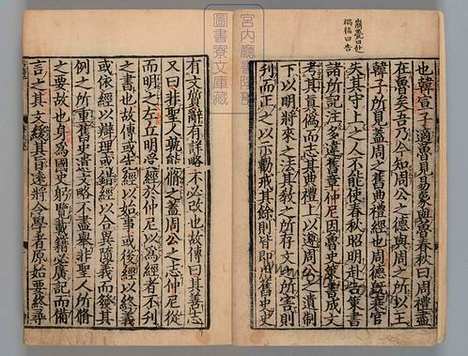 崩薨曰赴
禍福曰告
也韓宣子適魯見易象與魯春秋曰周禮盡
在魯矣吾乃今知周公之德與周之所以王
韓子所見蓋周之舊典禮經也周德既衰官
失其守上之人不能使春秋昭明赴告策書
諸所記注多違舊章仲尼因魯史策書成文
考其真僞而志其典禮上以遵周公之遺制
下以明將來之法其教之所存文之所害則
刊而正之以示勸戒其餘則皆即用舊史史
有文質辭有詳略不必改也故傳曰其善志
又曰非聖人孰能脩之蓋周公之志仲尼從
而明之左丘明受經於仲尼以爲經者不刊
之書也故傳或先經以始事或後經以終義
或依經以辯理或錯經以合異隨義而發其
例之所重舊史遺文略不盡舉非聖人所脩
之要故也身爲國史躬覽載籍必廣記而備
言之其文緩其旨遠將令學者原始要終尋
宮内廳書陵部
圖書寮文庫藏